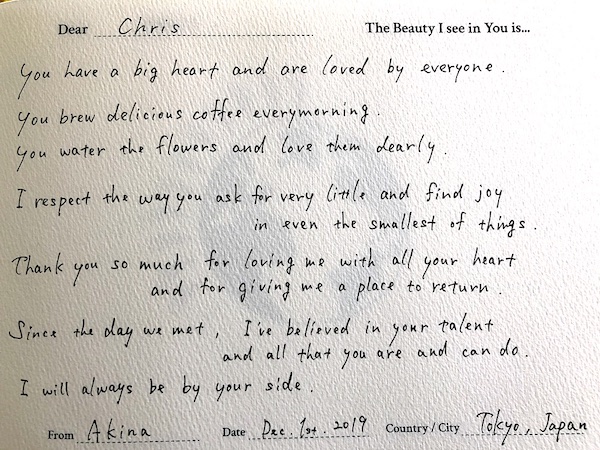 Dear Chris The Beauty I see in You is...
You have a big heart and are loved by everyone.
You brew delicious coffee everymorning.
You water the flowers and love them dearly.
I respect the way you ask for very little and find joy
in even the smallest of things.
Thank you so much for loving me with all your heart
and for giving me a place to return.
Since the day we met, I've believed in your talent
and all that you are and can do.
I will always be by your side.
From Akina Date Dec. 1st. 2019 Country / City Tokyo, Japan